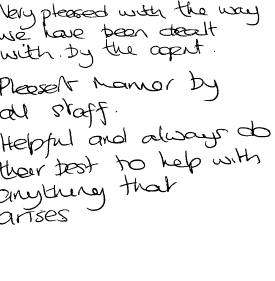 Very pleased with the way
we have been dealt
with by the agent.
Pleasent manner by
all staff.
Helpful and always do
their best to help with
anything that
arises